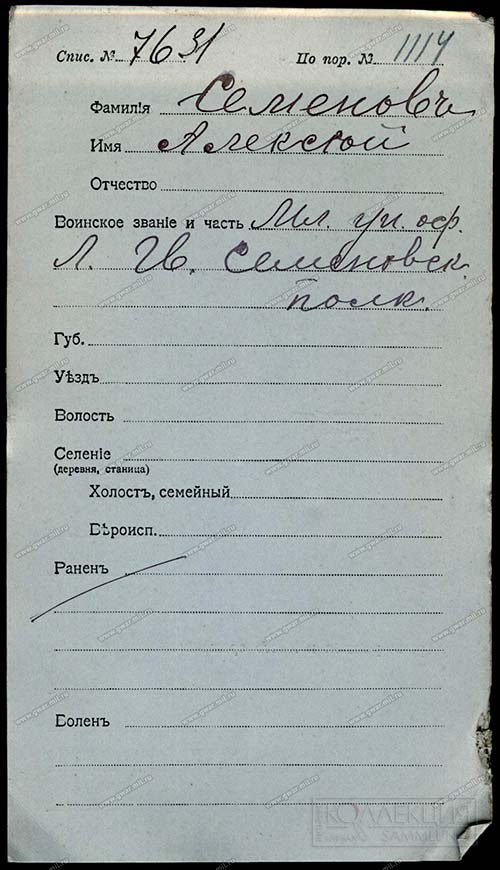 Спис. № 7631 По пор. № 1114
Фамилія Семеновъ
Имя Алексѣй
Отчество
Воинское званіе и часть Мл. ун. оф.
Л. Гв. Семеновск.
полк.
Губ.
Уѣздъ
Волость
Селеніе
(деревня, станица)
Холостъ, семейный
Вѣроисп.
Раненъ
Боленъ
КОЛЛЕКЦИЯ
SAMMLUNG
www.gwar.mil.ru